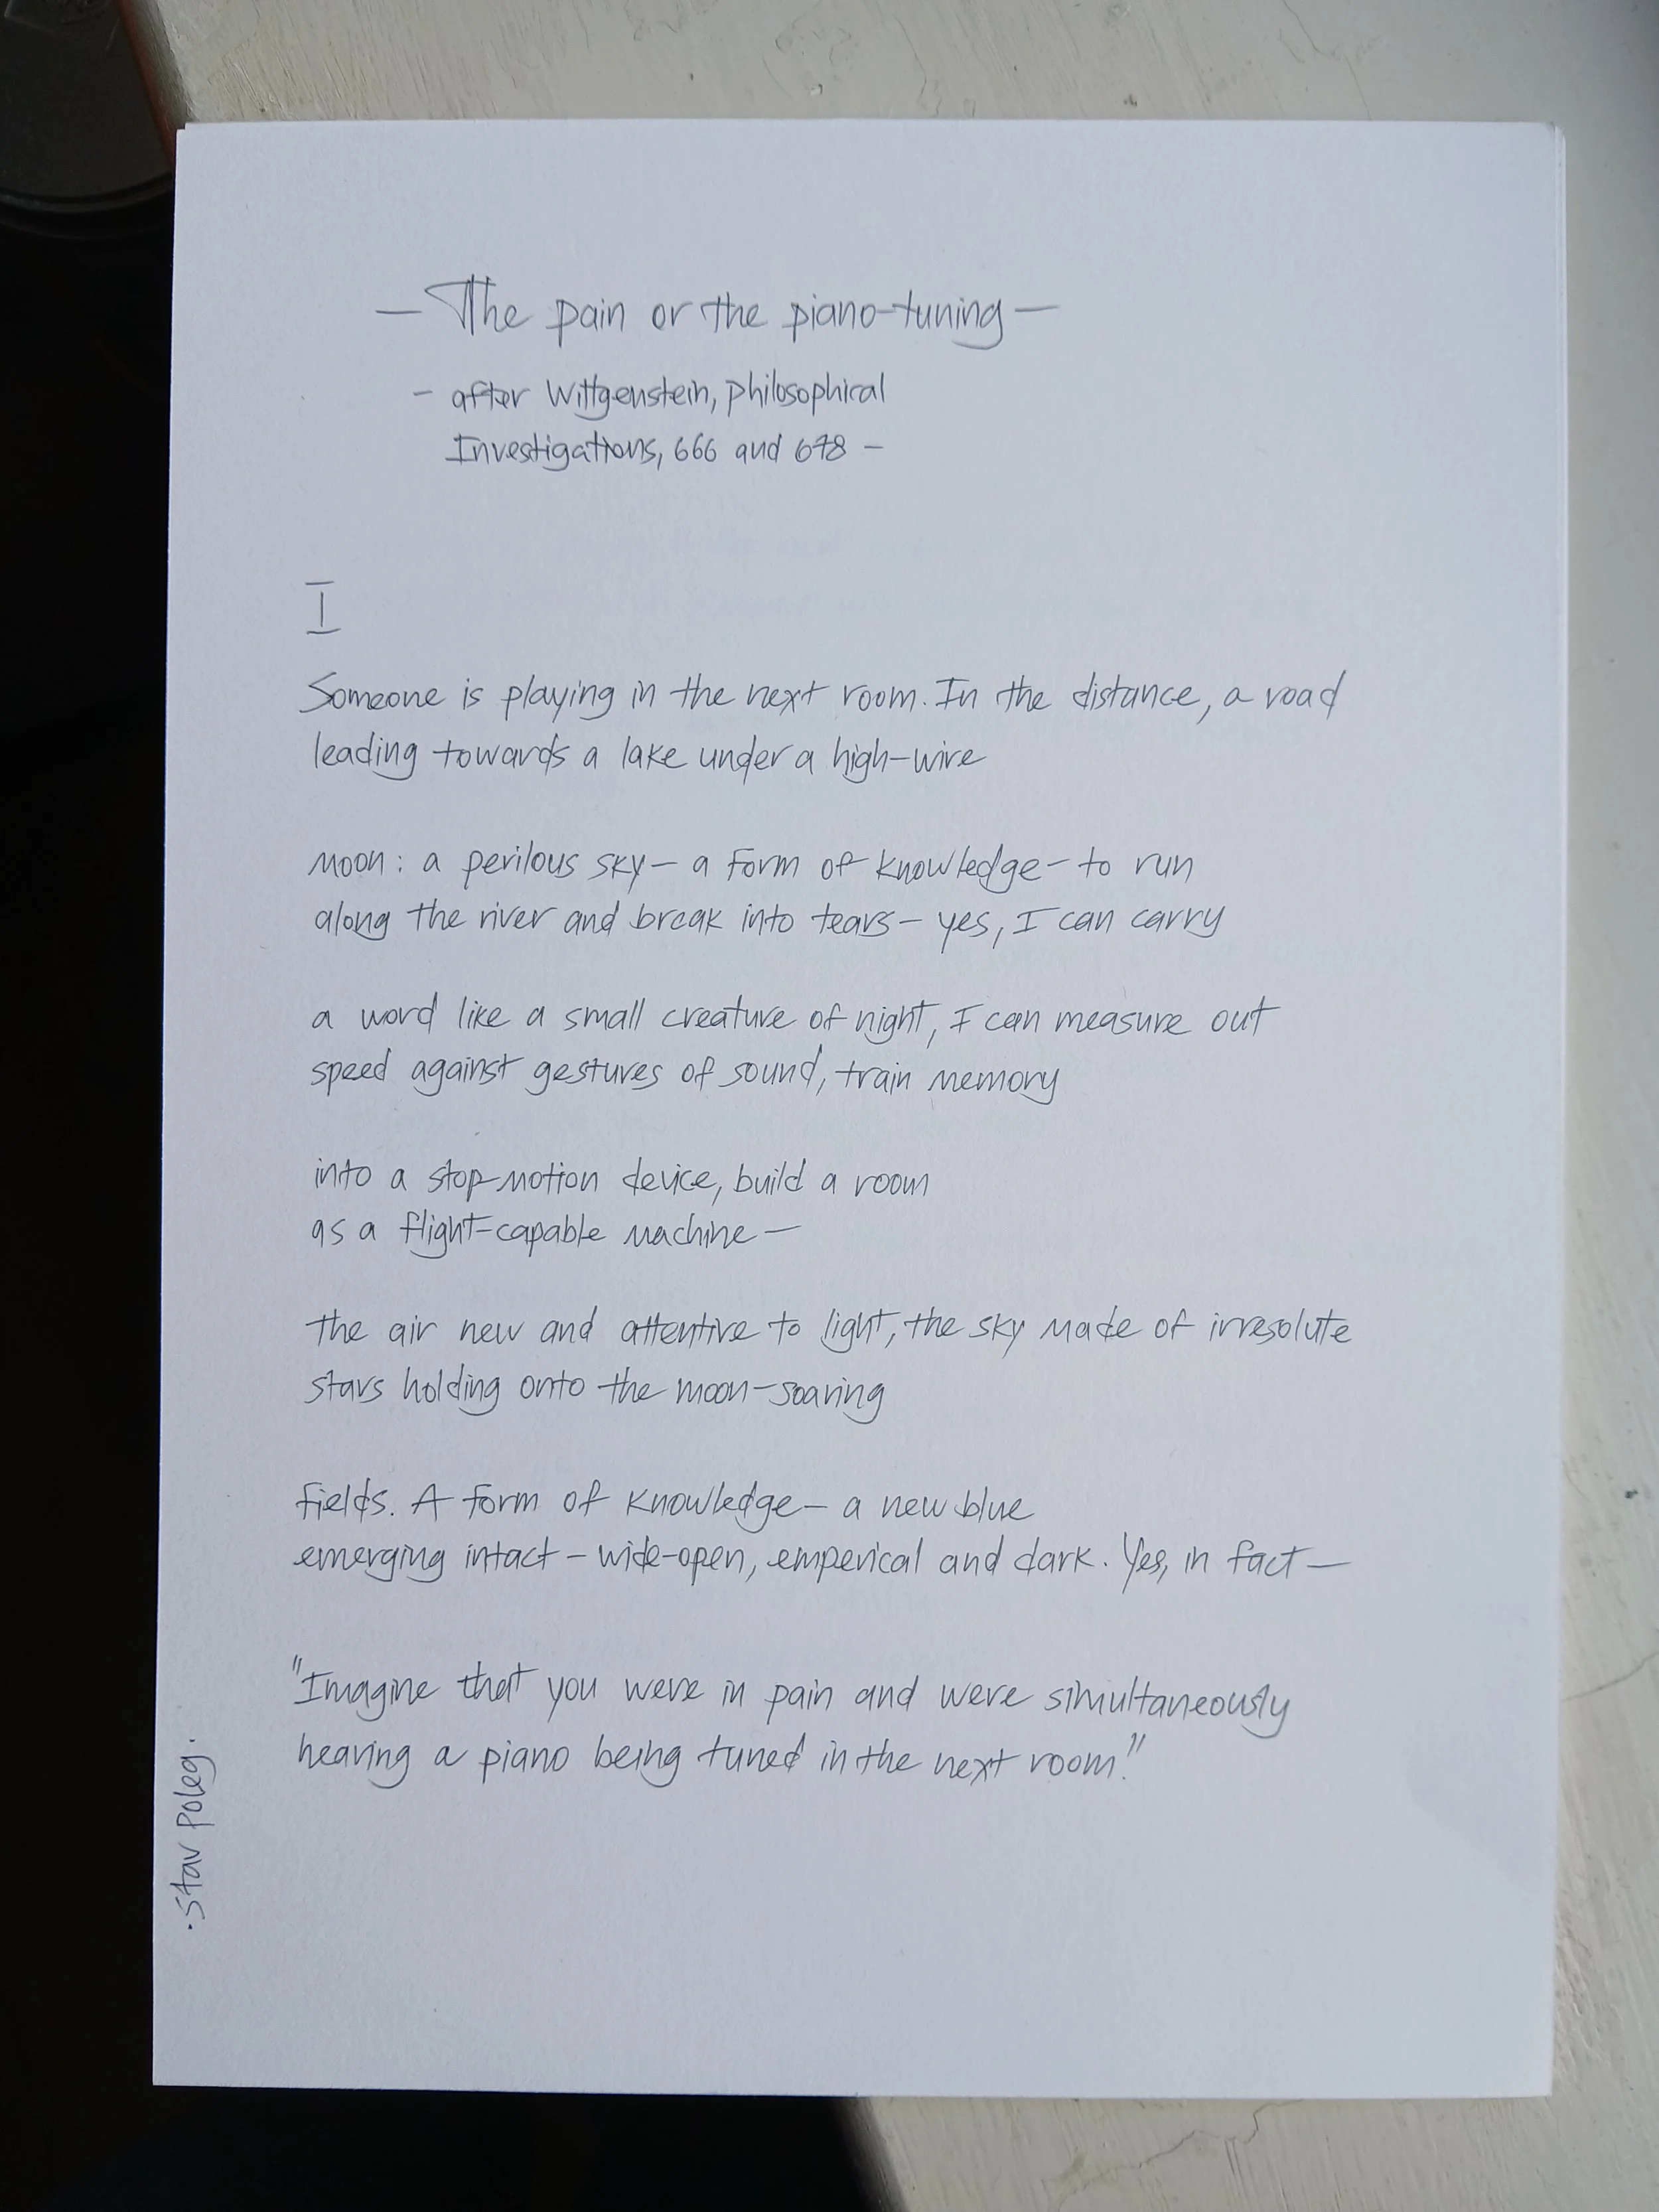 — The pain or the piano-tuning —
- after Wittgenstein, Philosophical
Investigations, 666 and 678 -
I
Someone is playing in the next room. In the distance, a road
leading towards a lake under a high-wire
moon: a perilous sky — a form of knowledge — to run
along the river and break into tears — yes, I can carry
a word like a small creature of night, I can measure out
speed against gestures of sound, train memory
into a stop-motion device, build a room
as a flight-capable machine —
the air new and attentive to light, the sky made of irresolute
stars holding onto the moon-soaring
fields. A form of knowledge — a new blue
emerging intact — wide-open, emperical and dark. Yes, in fact —
"Imagine that you were in pain and were simultaneously
hearing a piano being tuned in the next room."
·Stav Poleg·